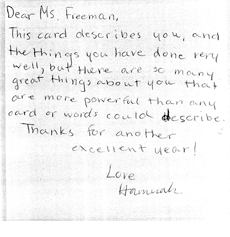 Dear Ms. Freeman,
This card describes you, and
the things you have done very
well, but there are so many
great things about you that
are more powerful than any
card or words could describe.
Thanks for another
excellent year!
Love
Hannah